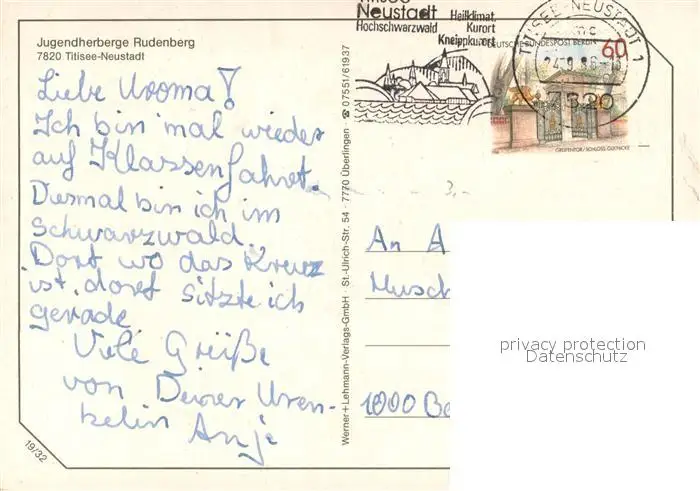 Jugendherberge Rudenberg
7820 Titisee-Neustadt
Liebe Uroma!
Ich bin mal wieder
auf Klassenfahrt.
Diesmal bin ich im
Schwarzwald.
Dort wo das Kreuz
ist, dort sitzte ich
gerade
Viele Grüße
von Deiner Uren-
kelin Anje
19/32
Werner+Lehmann-Verlags-GmbH · St.-Ulrich-Str. 54 · 7770 Überlingen · ☎ 07551/61937
Neustadt
Hochschwarzwald
Heilklimat.
Kurort
Kneippkurort
TITISEE-NEUSTADT 1
7820
DEUTSCHE BUNDESPOST BERLIN
60
GREIFENTOR/SCHLOSS GLIENICKE
3,-
An A
Musch
1000 Be
privacy protection
Datenschutz